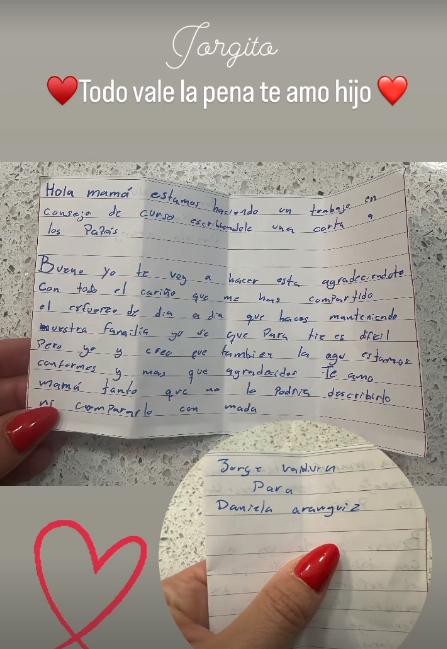 Jorgito
❤️Todo vale la pena te amo hijo ❤️
Hola mamá estamos haciendo un trabajo en
consejo de curso escribiendole una carta a
los Papás
Bueno yo te voy a hacer esta agradeciendote
con todo el cariño que me has compartido
el esfuerzo de dia a dia que haces manteniendo
nuestra familia yo se que para tie es dificil
Pero yo y creo que tambien la agu estamos
conformes y mas que agradecidos Te amo
mamá tanto que no lo Podria describirlo
ni compararlo con nada
Jorge
Para
Daniela aranguiz